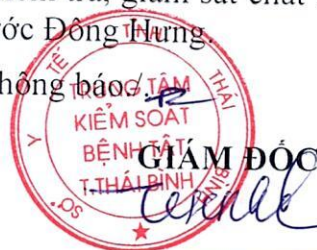 giám sát chất
ước Đông Hưng.
hông báo./.
SỞ Y TẾ THÁI BÌNH
TRUNG TÂM
KIỂM SOÁT
BỆNH TẬT
T.THÁI BÌNH
GIÁM ĐỐC